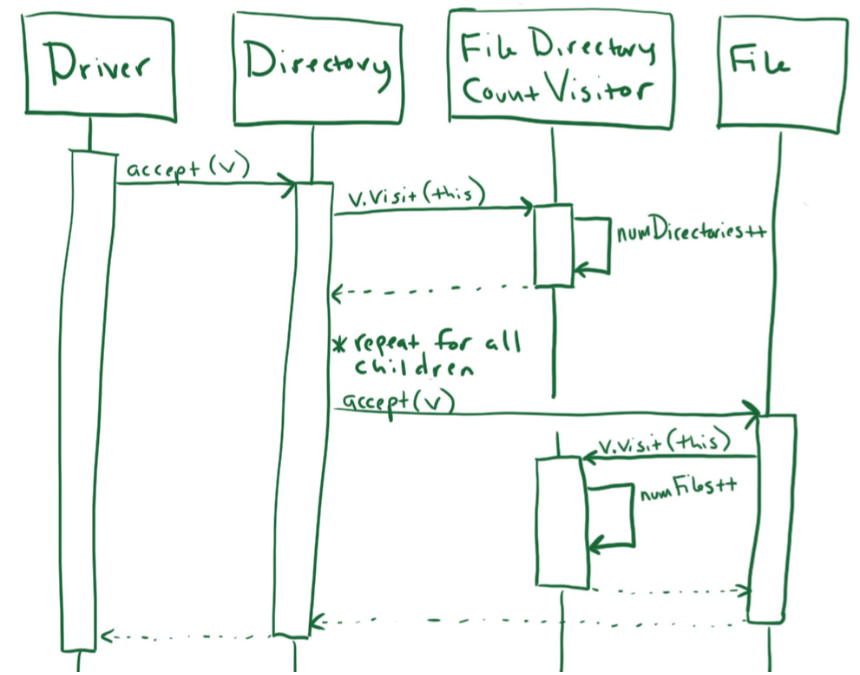 Driver
Directory
File Directory
Count Visitor
File
accept (v)
v.visit(this)
numDirectories++
* repeat for all
children
accept(v)
v.visit(this)
numFiles++